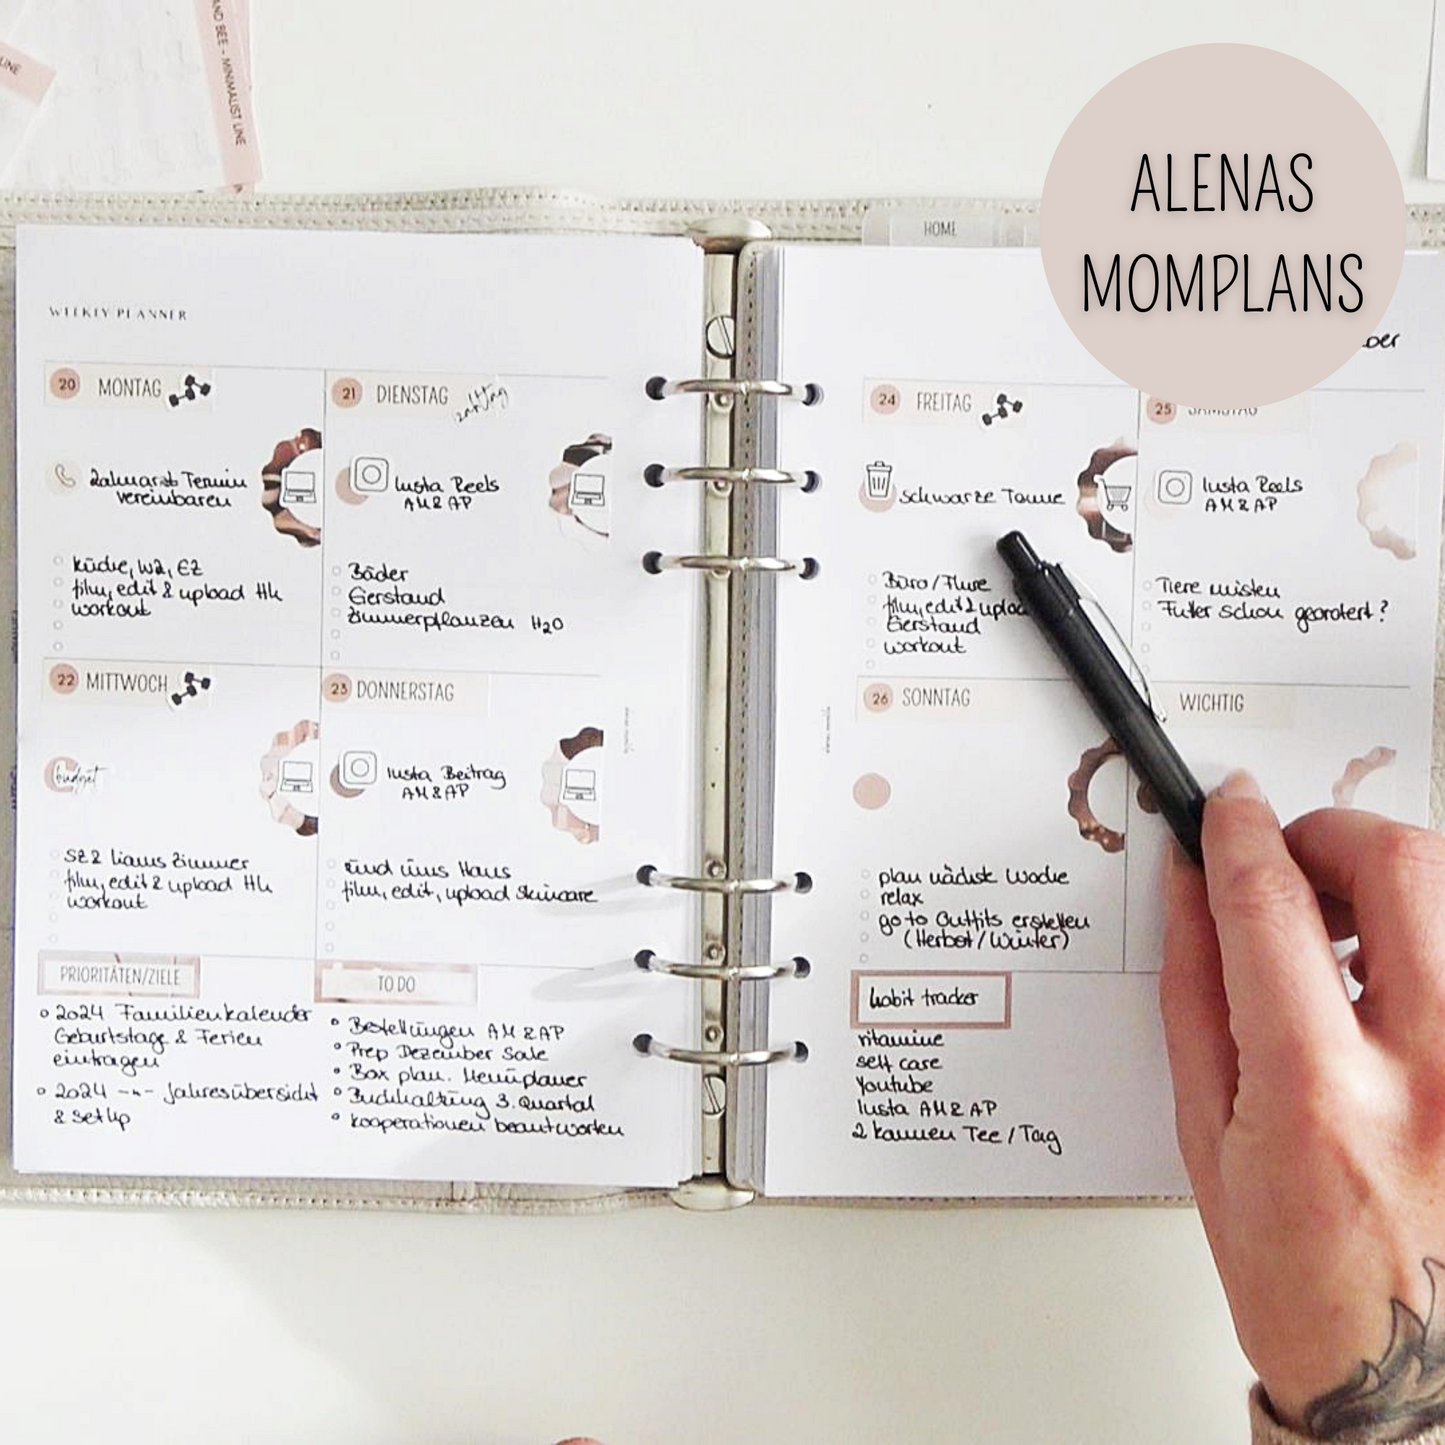 LINE
AND BEE - MINIMALIST LINE
ALENAS
MOMPLANS
HOME
WEEKLY PLANNER
20 MONTAG
Zahnarzt Termin
vereinbaren
küche, WZ, EZ
film, edit & upload HH
workout
21 DIENSTAG
Insta Reels
AM & AP
Bäder
Eierstand
Zimmerpflanzen H2O
22 MITTWOCH
budget
SZ & Liams Zimmer
film, edit & upload HH
workout
23 DONNERSTAG
Insta Beitrag
AM & AP
rund ums Haus
film, edit, upload Skincare
PRIORITÄTEN/ZIELE
2024 Familienkalender
Geburtstage & Ferien
eintragen
2024 -"- Jahresübersicht
& SetUp
TO DO
Bestellungen AM & AP
Prep Dezember Sale
Box plan. Menüplaner
Buchhaltung 3. Quartal
kooperationen beantworten
24 FREITAG
schwarze Tonne
Büro/Flure
film, edit & upload
Eierstand
workout
25 SAMSTAG
Insta Reels
AM & AP
Tiere misten
Futter schon geordert?
26 SONNTAG
plan nächste Woche
relax
go to Outfits erstellen
(Herbst/Winter)
WICHTIG
habit tracker
vitamine
self care
Youtube
Insta AM & AP
2 kannen Tee / Tag